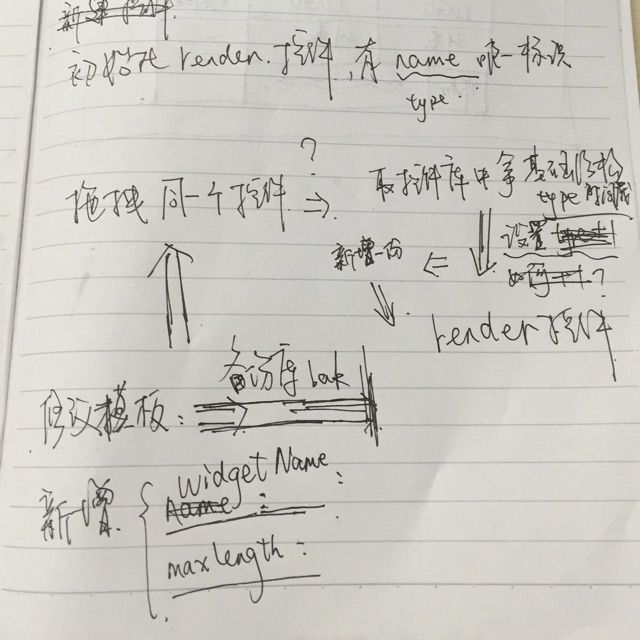 初始化 render 控件,有 name 唯一标识
type
?
拖拽同一个控件 ⇒
取控件库中拿基础
type 的问题
设置
新增一个 ⇐
如何 ?
render 控件
备份库 bak
修改模板:
widgetName :
新增 { Name :
maxlength :